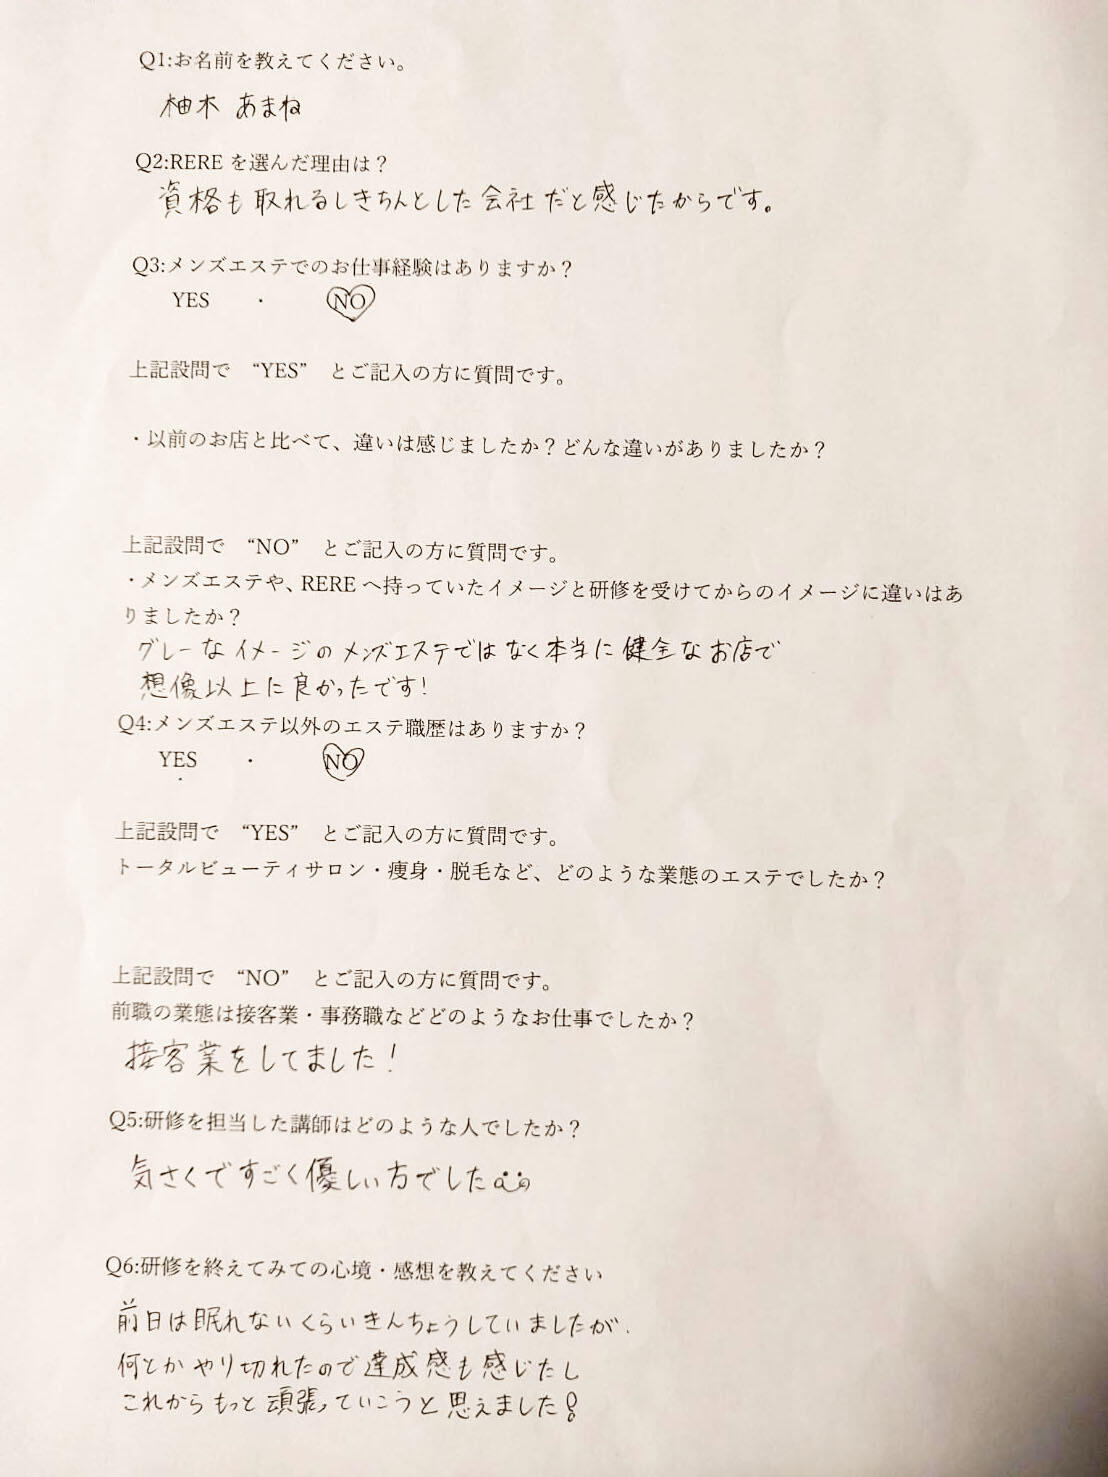 Q1:お名前を教えてください。
柚木 あまね
Q2:RERE を選んだ理由は？
資格も取れるしきちんとした会社だと感じたからです。
Q3:メンズエステでのお仕事経験はありますか？
YES ・ NO
上記設問で “YES” とご記入の方に質問です。
・以前のお店と比べて、違いは感じましたか？どんな違いがありましたか？
上記設問で “NO” とご記入の方に質問です。
・メンズエステや、RERE へ持っていたイメージと研修を受けてからのイメージに違いはあ
りましたか？
グレーなイメージのメンズエステではなく本当に健全なお店で
想像以上に良かったです！
Q4:メンズエステ以外のエステ職歴はありますか？
YES ・ NO
上記設問で “YES” とご記入の方に質問です。
トータルビューティサロン・痩身・脱毛など、どのような業態のエステでしたか？
上記設問で “NO” とご記入の方に質問です。
前職の業態は接客業・事務職などどのようなお仕事でしたか？
接客業をしてました！
Q5:研修を担当した講師はどのような人でしたか？
気さくですごく優しい方でした
Q6:研修を終えてみての心境・感想を教えてください
前日は眠れないくらいきんちょうしていましたが、
何とかやり切れたので達成感も感じたし
これからもっと頑張っていこうと思えました！